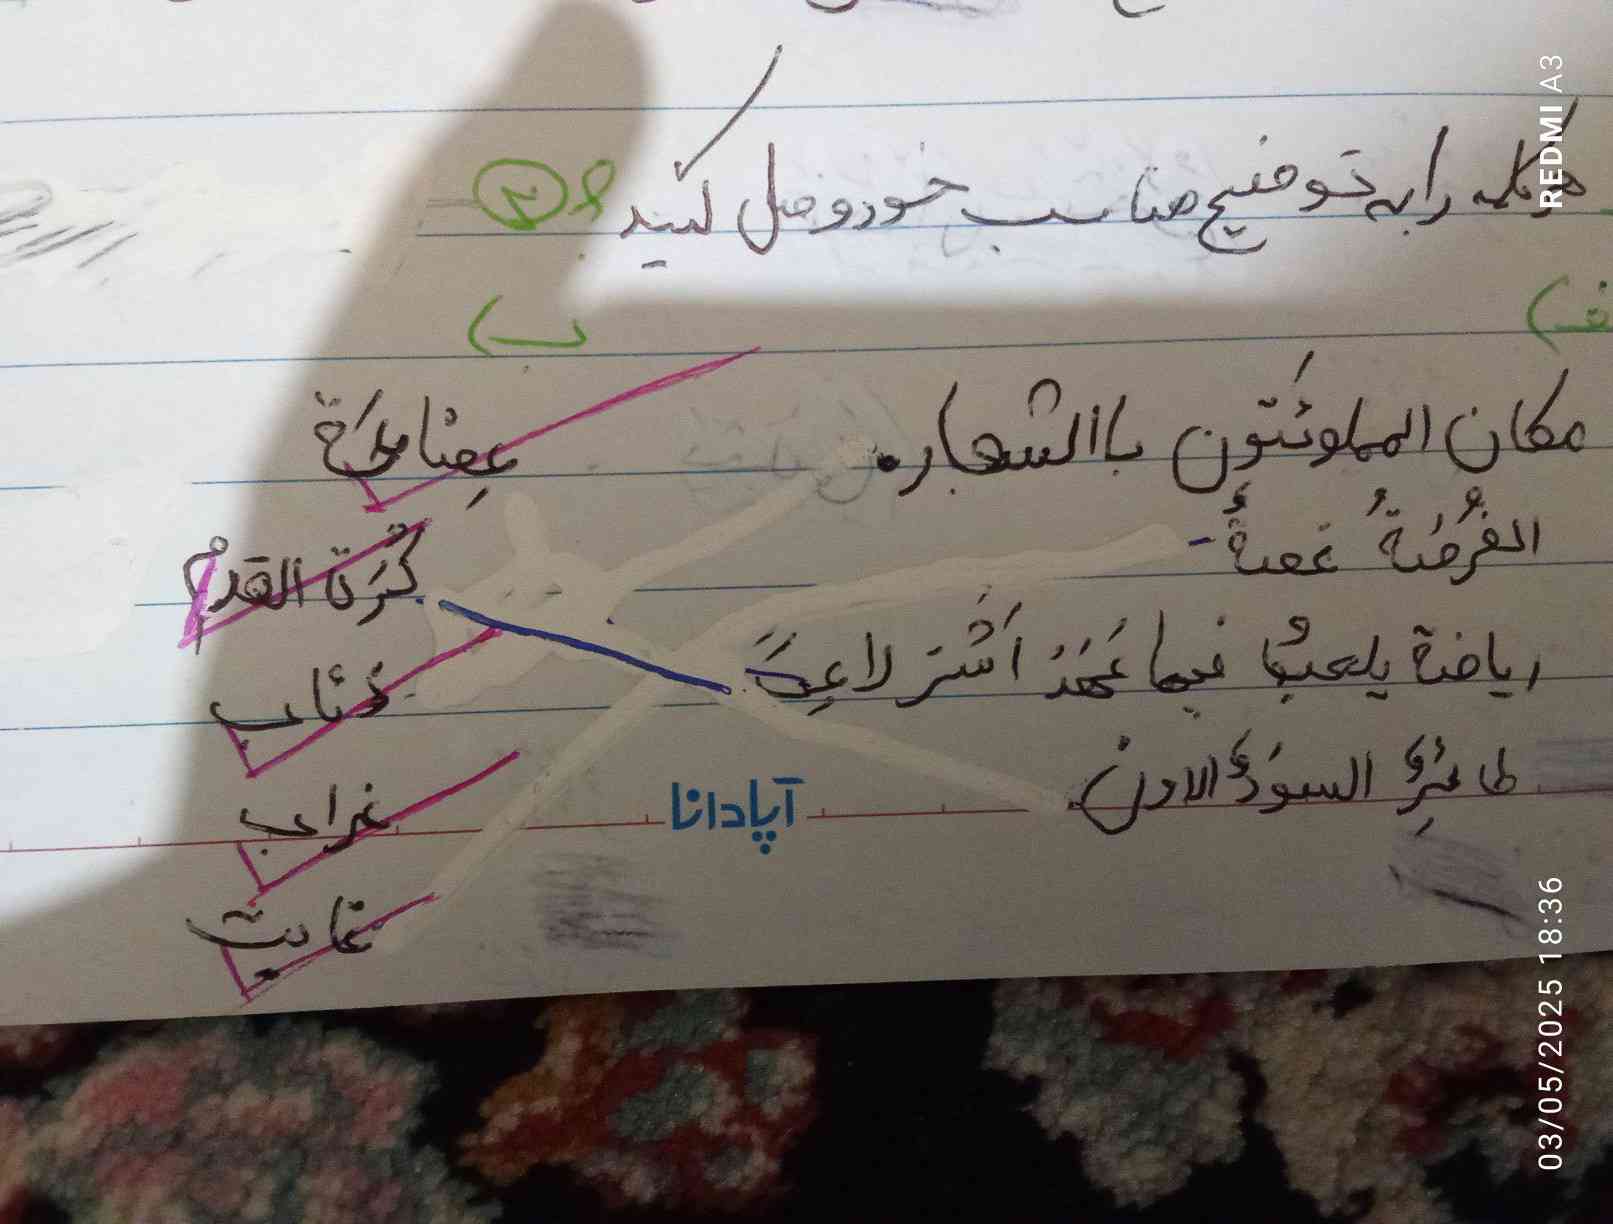 هر کلمه را به توضیح مناسب خود وصل کنید
ب)
مکان المملوئتون باالشجار.
عضا
الفُرصَةُ غصةٌ -
کُرَة القدم
ریاضة یلعبُها فیها اَشتر لاعِبَ
ذئاب
طائِرُ السودُ الاون.
غراب
غابت
آپادانا
REDMI A3
03/05/2025 18:36